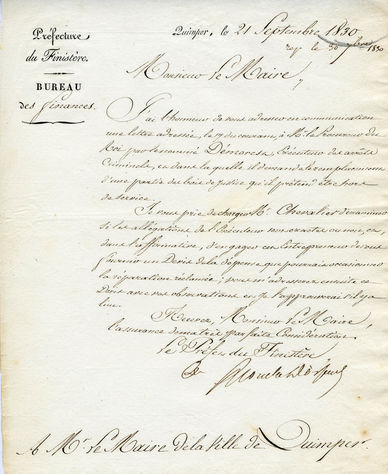 Préfecture
du Finistère.
BUREAU
des finances.
Quimper, le 21 Septembre 1830
le 30 1830
Monsieur le Maire,
J'ai l'honneur de vous adresser en communication
une lettre adressée, le 17 du courant, à Mr le Procureur du
Roi par le nommé Démorest, Exécuteur des arrêts
Criminels, et dans laquelle il demande le remplacement
d'une partie des bois de justice qu'il prétend être hors
de service.
Je vous prie de charger Mr Chevalier d'examiner
si les allégations de l'Exécuteur sont exactes ou non, et,
dans l'affirmative, d'engager un Entrepreneur de vous
fournir un Devis de la dépense que pourrait occasionner
la réparation réclamée; vous m'adresserez ensuite ce
Devis avec vos observations et je l'approuverai s'il y a
lieu.
Recevez, Monsieur le Maire,
l'assurance de ma très parfaite Considération.
Le Préfet du Finistère
A Mr le Maire de la Ville de Quimper.